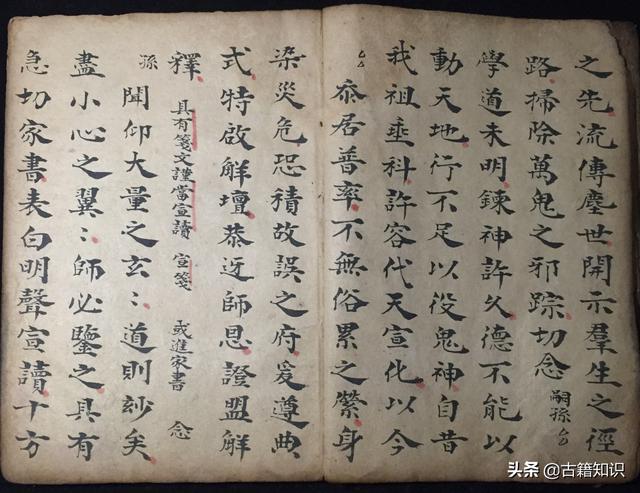 之先流傳塵世開示羣生之徑
路掃除萬鬼之邪踪切念 嗣孫厶厶
學道未明鍊神許久德不能以
動天地行不足以役鬼神自昔
我祖垂科許容代天宣化以今
厶厶 忝居普率不無俗累之縈身
染災危恐積故誤之府爰遵典
式特啟觧壇恭迓師恩證盟觧
釋 具有箋文謹當宣讀 宣箋 或進家書 念
孫 聞仰大量之玄〻道則玅矣
盡小心之翼〻師必鑒之具有
急切家書表白明聲宣讀十方
头条 @古籍知识